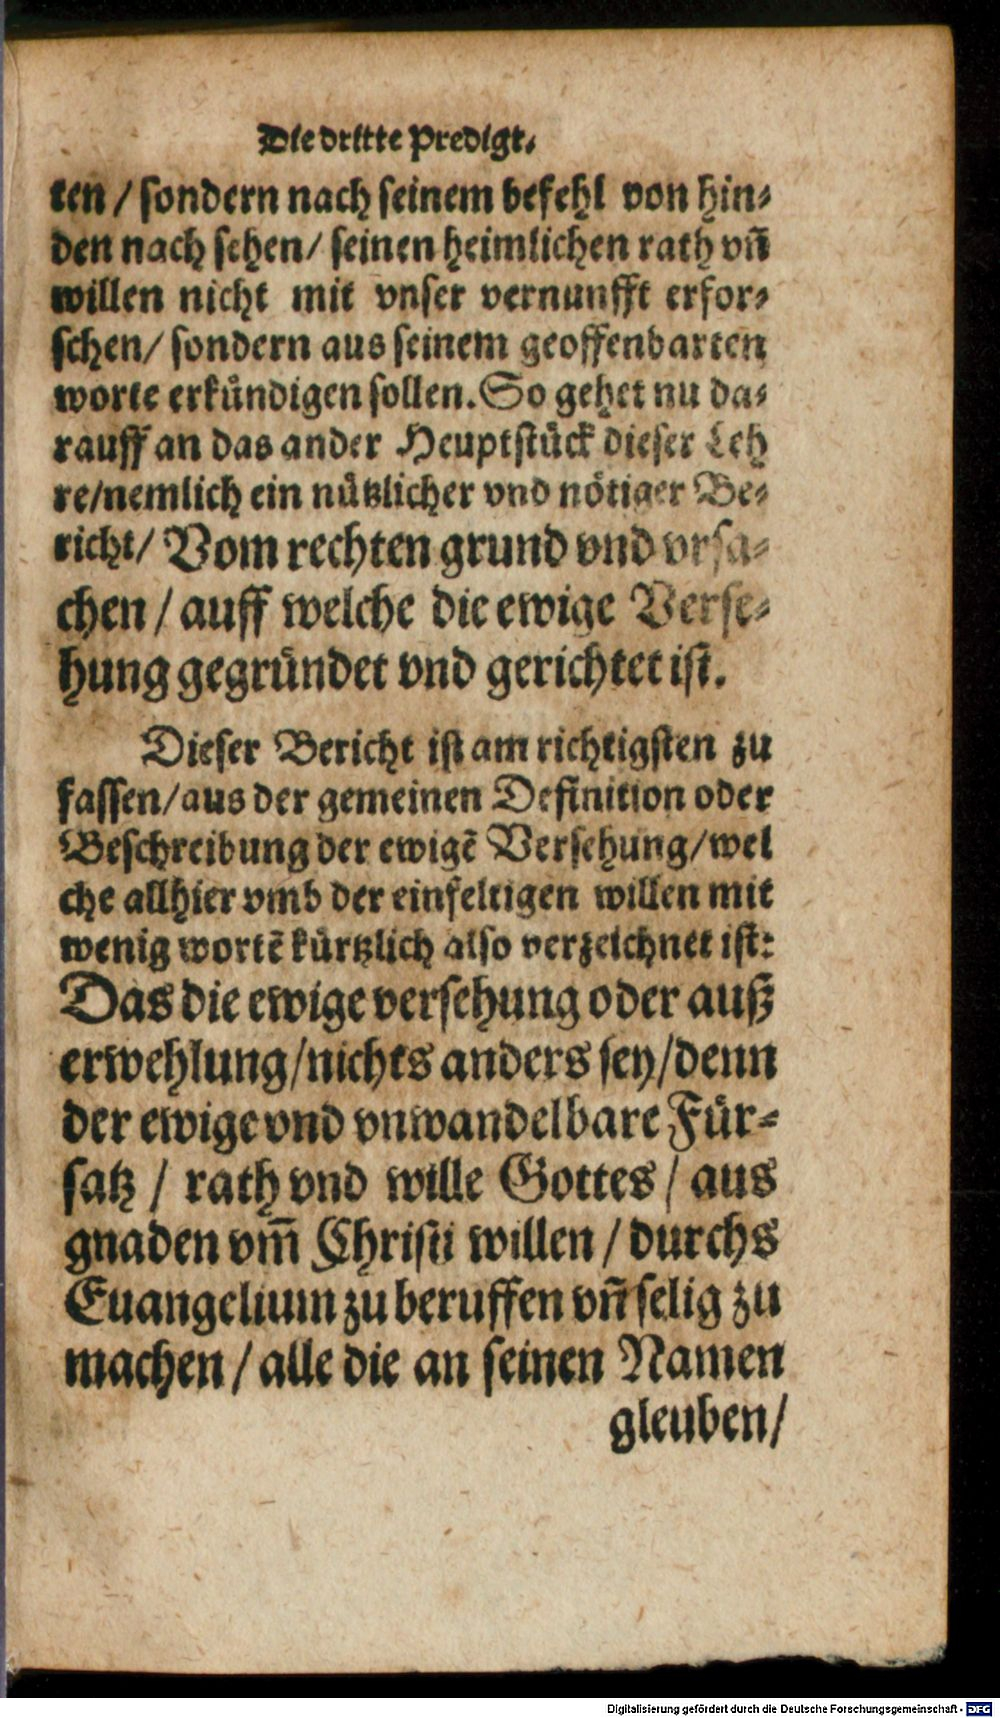 Die dritte Predigt.
ten / sondern nach seinem befehl von hin-
den nach sehen / seinen heimlichen rath vñ
willen nicht mit vnser vernunfft erfor-
schen / sondern aus seinem geoffenbarten
worte erkündigen sollen. So gehet nu da-
rauff an das ander Heuptstück dieser Leh
re / nemlich ein nützlicher vnd nötiger Be-
richt / Vom rechten grund vnd vrsa-
chen / auff welche die ewige Verse-
hung gegründet vnd gerichtet ist.
Dieser Bericht ist am richtigsten zu
fassen / aus der gemeinen Definition oder
Beschreibung der ewigẽ Versehung / wel
che allhier vmb der einfeltigen willen mit
wenig wortẽ kürtzlich also verzeichnet ist:
Das die ewige versehung oder auß
erwehlung / nichts anders sey / denn
der ewige vnd vnwandelbare Für-
satz / rath vnd wille Gottes / aus
gnaden vm̃ Christi willen / durchs
Euangelium zu beruffen vñ selig zu
machen / alle die an seinen Namen
gleuben /
Digitalisierung gefördert durch die Deutsche Forschungsgemeinschaft - DFG